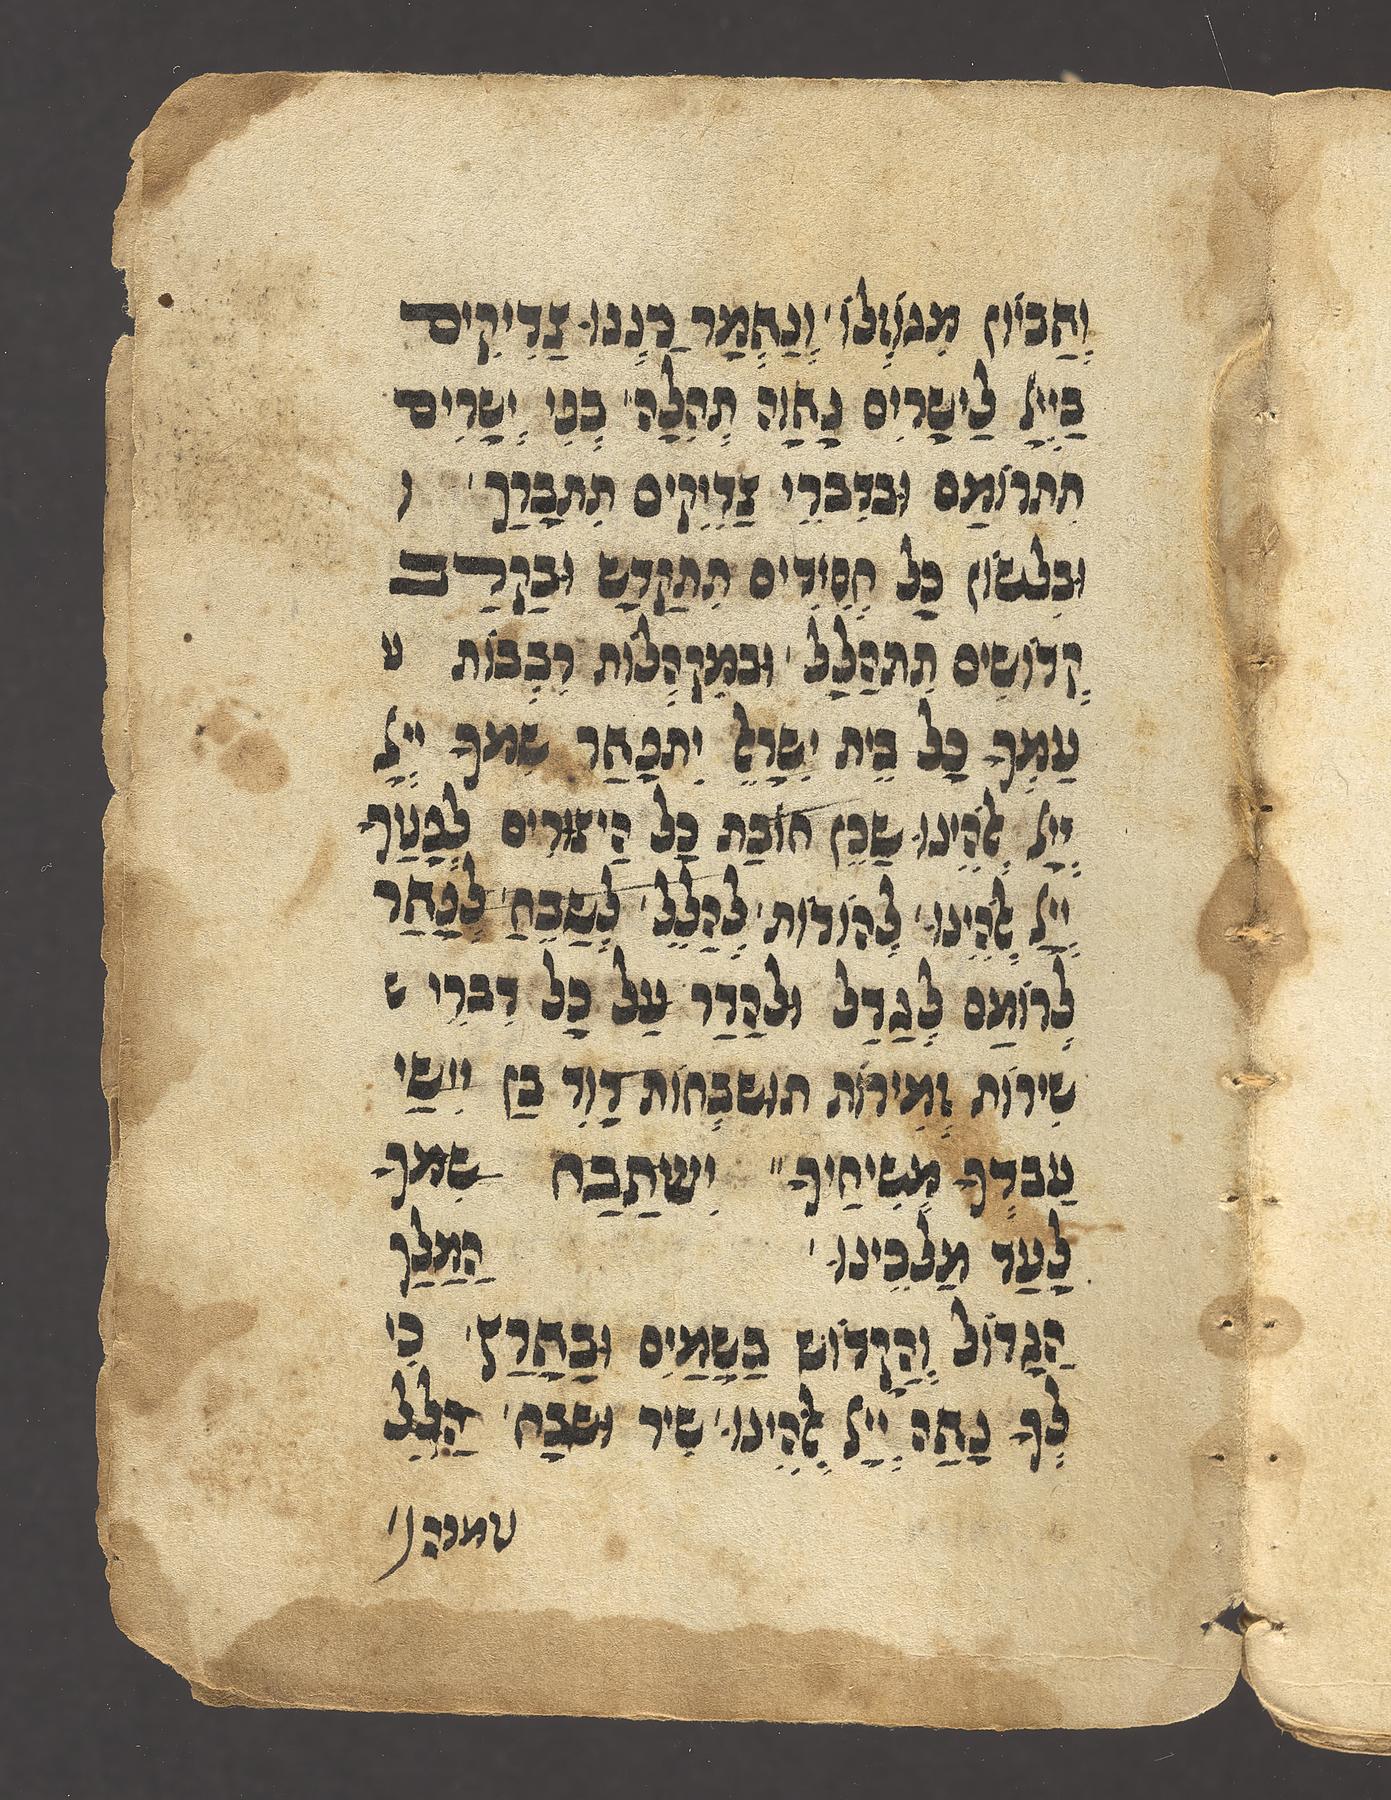 וְהַבְיוֹן מִגוֹזְלוֹ' וְנֶאְמַר רַנְנוּ צַדִיקִים
בַּייָלָ לַישָׁרִים נָאוָה תְהִלָה' בְּפִי יְשָׁרִים
תִתרוֹמַם וּבדִברֵי צַדִיקִים תִתבָּרַך'
וּבִלשׁוֹן כָל חֲסִידִים תִתקַדַשׁ וּבַקֶרַב
קְדוֹשִׁים תִתהַלָל' וּבמִקהְלוֹת רִבְבוֹת ע
עַמְךָ כָל בֵית יִשׂרָאֵל יִתפָּאַר שִׁמךָ ייָלָ
ייָלָ אֱלֹהֵינוּ שֶׁכֵּן חוֹבַת כָל הַיצוּרִים לְפָנֶיךָ
ייָלָ אֱלֹהֵינוּ' לְהוֹדוֹת' לְהַלֵל' לְשַׁבֵּחַ' לְפָאַר
לְרוֹמַם לְגַדַל וּלהַדַר עַל כָל דִברֵי ש
שִׁירוֹת וְזמִירוֹת תוּשׁבְּחוֹת דָוִד בֶּן יִישַׁי
עַבדְךָ מְשִׁיחֶיךָ" יִשׁתַבַּח שִׁמךָ
לָעַד מַלכֵּינוּ' הַמֶלֶך
הַגָדוֹל וְהַקָדוֹשׁ בַּשָׁמַיִם וּבָאָרֶץ' כִּי
לְךָ נָאֶה ייָלָ אֱלֹהֵינוּ' שִׁיר וּשׁבָח' הַלֵל